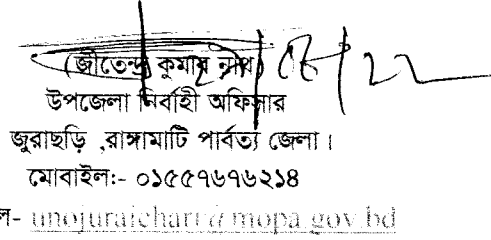 (জীতেন্দ্র কুমার নাথ)
উপজেলা নির্বাহী অফিসার
জুরাছড়ি ,রাঙ্গামাটি পার্বত্য জেলা।
মোবাইল:- ০১৫৫৭৬৭৬২১৪
ল- unojuraichari@mopa.gov.bd